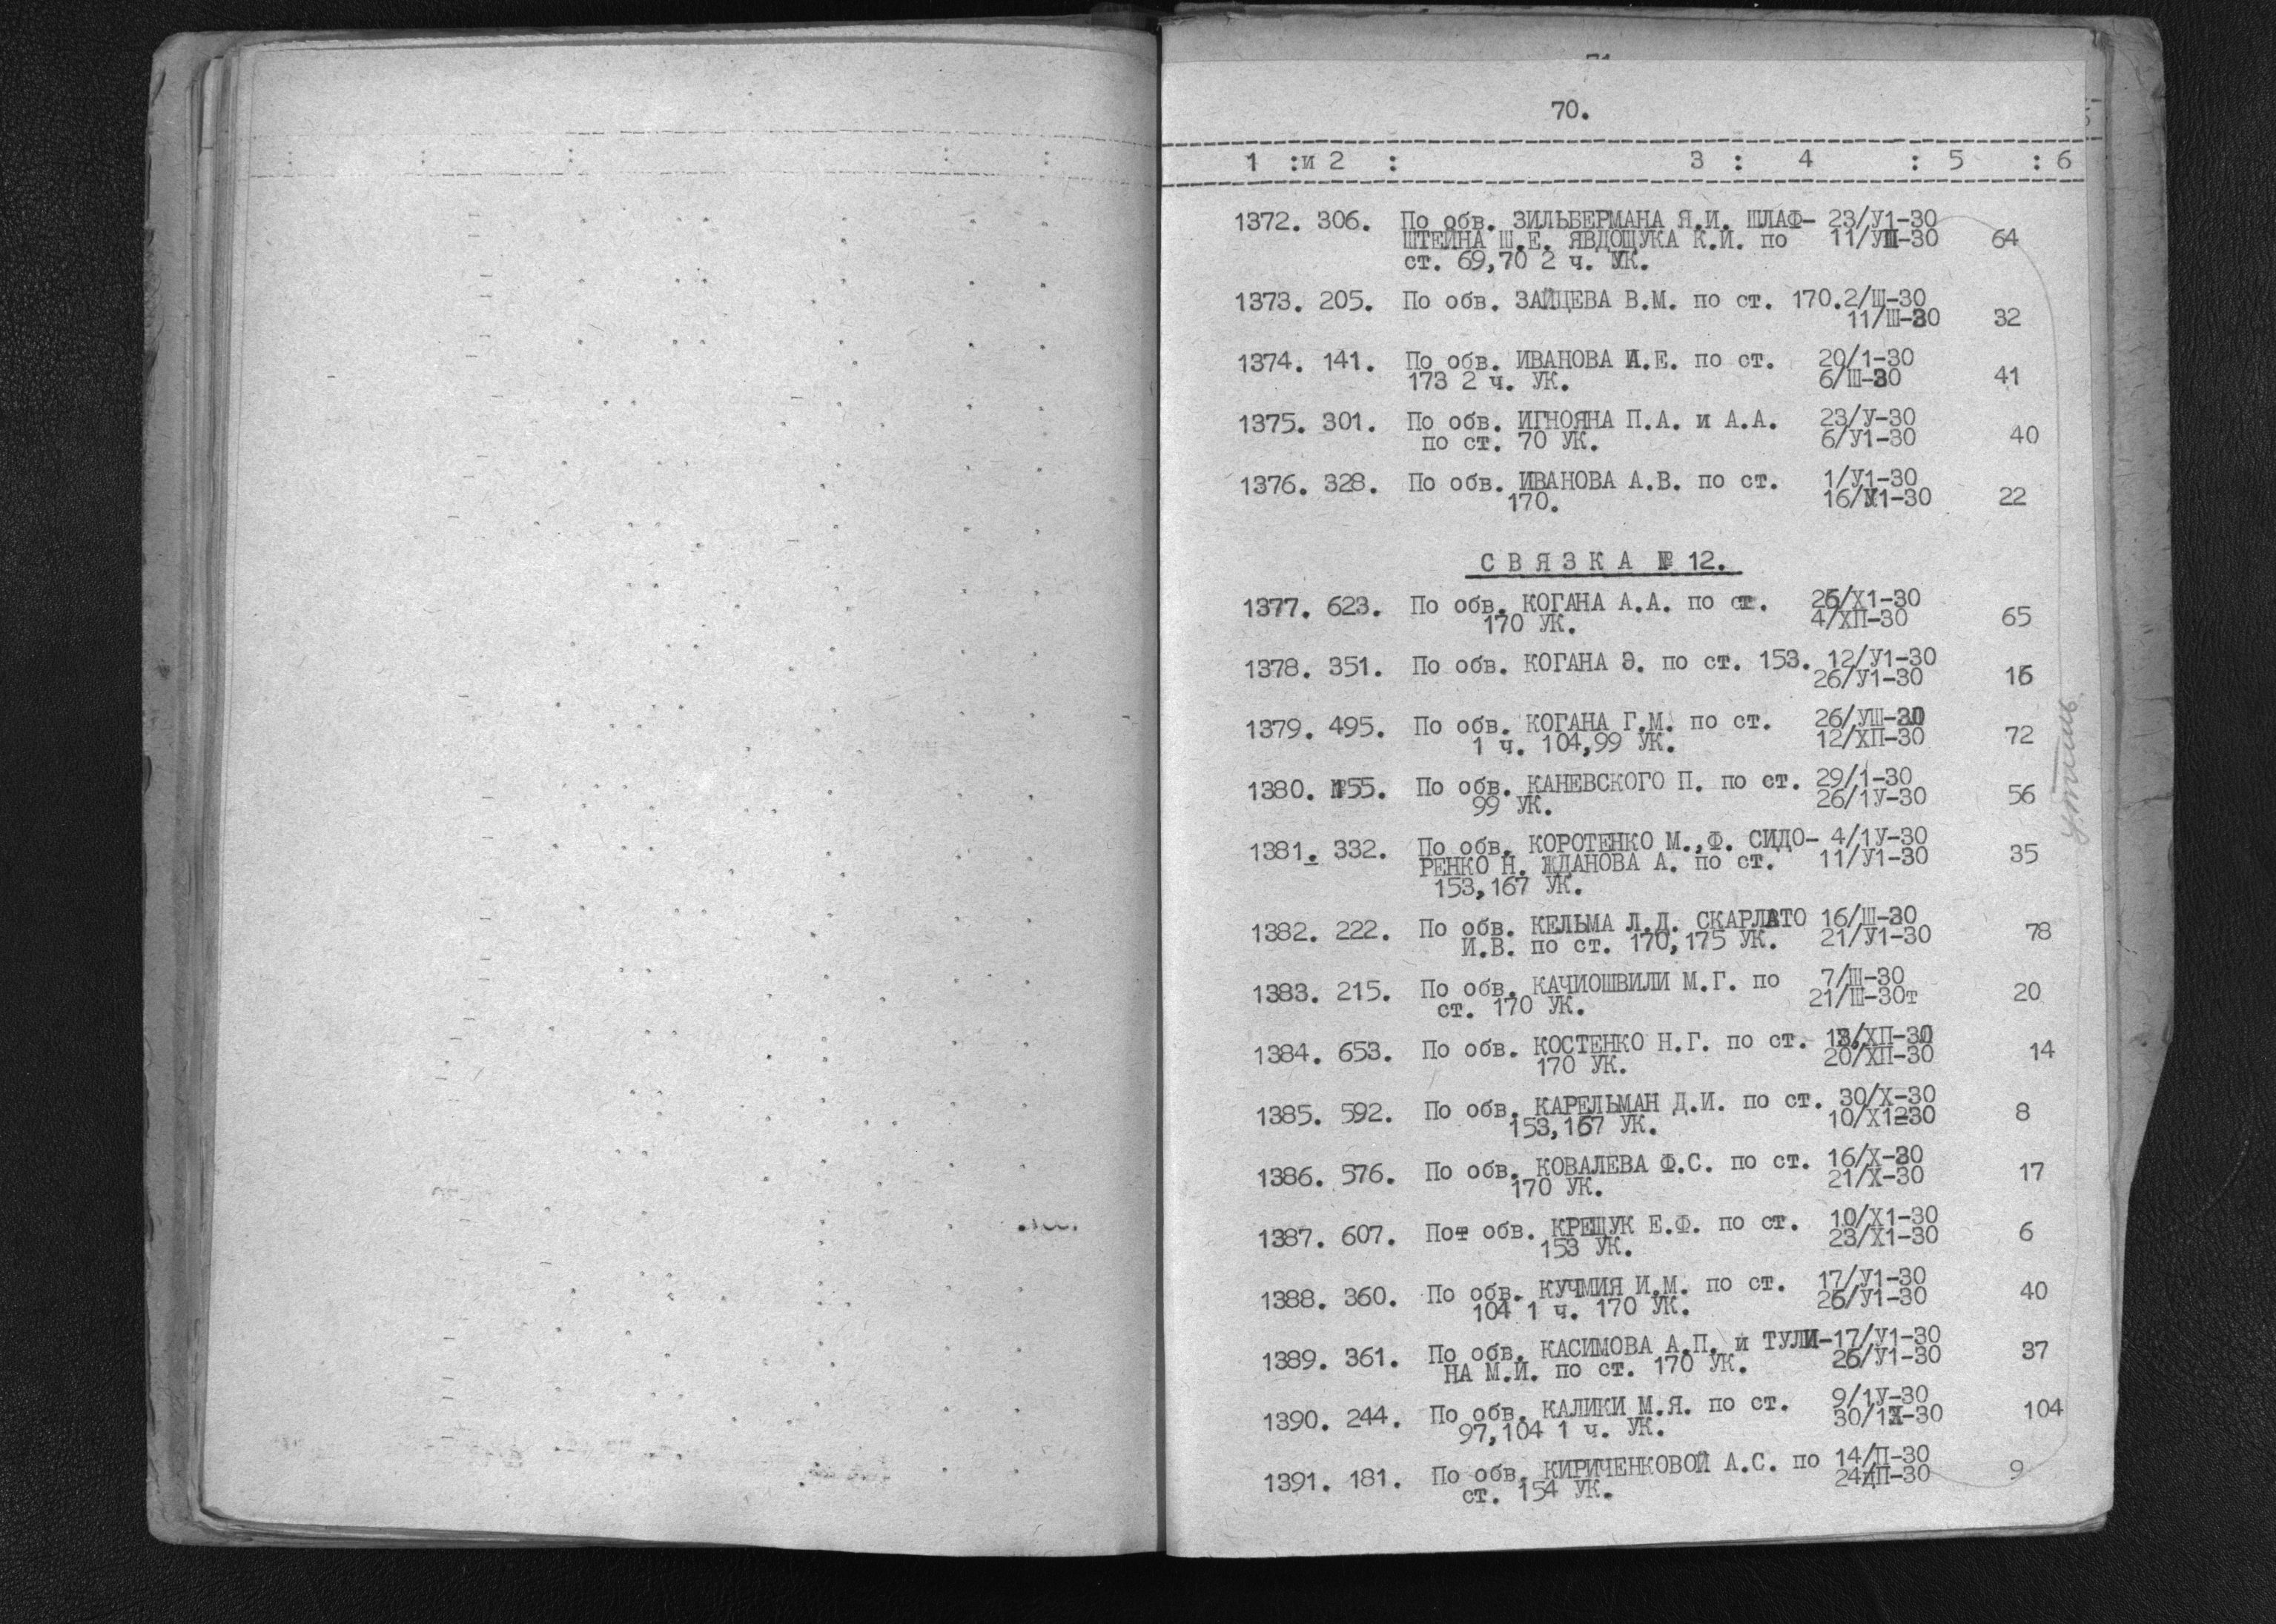 70.
1 :и 2 : 3 : 4 : 5 : 6
1372. 306. По обв. ЗИЛЬБЕРМАНА Я.И. ШЛАФ- 23/У1-30
ШТЕЙНА Ш.Е. ЯВДОЩУКА К.И. по 11/УШ-30 64
ст. 69,70 2 ч. УК.
1373. 205. По обв. ЗАЙЦЕВА В.М. по ст. 170. 2/Ш-30
11/Ш-30 32
1374. 141. По обв. ИВАНОВА И.Е. по ст. 20/1-30
173 2 ч. УК. 6/Ш-30 41
1375. 301. По обв. ИГНОЯНА П.А. и А.А. 23/У-30
по ст. 70 УК. 6/У1-30 40
1376. 328. По обв. ИВАНОВА А.В. по ст. 1/У1-30
170. 16/У1-30 22
С В Я З К А № 12.
1377. 623. По обв. КОГАНА А.А. по ст. 26/Х1-30
170 УК. 4/ХП-30 65
1378. 351. По обв. КОГАНА Э. по ст. 153. 12/У1-30
26/У1-30 16
1379. 495. По обв. КОГАНА Г.М. по ст. 26/УШ-30
1 ч. 104,99 УК. 12/ХП-30 72
1380. №55. По обв. КАНЕВСКОГО П. по ст. 29/1-30
99 УК. 26/1У-30 56
1381. 332. По обв. КОРОТЕНКО М.,Ф. СИДО- 4/1У-30
РЕНКО Н. ЖДАНОВА А. по ст. 11/У1-30 35
153,167 УК.
1382. 222. По обв. КЕЛЬМА Л.Д. СКАРЛАТО 16/Ш-30
И.В. по ст. 170,175 УК. 21/У1-30 78
1383. 215. По обв. КАЧИОШВИЛИ М.Г. по 7/Ш-30
ст. 170 УК. 21/Ш-30т 20
1384. 653. По обв. КОСТЕНКО Н.Г. по ст. 13/ХП-30
170 УК. 20/ХП-30 14
1385. 592. По обв. КАРЕЛЬМАН Д.И. по ст. 30/Х-30
153,167 УК. 10/Х1230 8
1386. 576. По обв. КОВАЛЕВА Ф.С. по ст. 16/Х-30
170 УК. 21/Х-30 17
1387. 607. Пот обв. КРЕЩУК Е.Ф. по ст. 10/Х1-30
153 УК. 23/Х1-30 6
1388. 360. По обв. КУЧМИЯ И.М. по ст. 17/У1-30
104 1 ч. 170 УК. 26/У1-30 40
1389. 361. По обв. КАСИМОВА А.П. и ТУЛИ- 17/У1-30
НА М.И. по ст. 170 УК. 26/У1-30 37
1390. 244. По обв. КАЛИКИ М.Я. по ст. 9/1У-30
97,104 1 ч. УК. 30/1Х-30 104
1391. 181. По обв. КИРИЧЕНКОВОЙ А.С. по 14/П-30
ст. 154 УК. 24дП-30 9